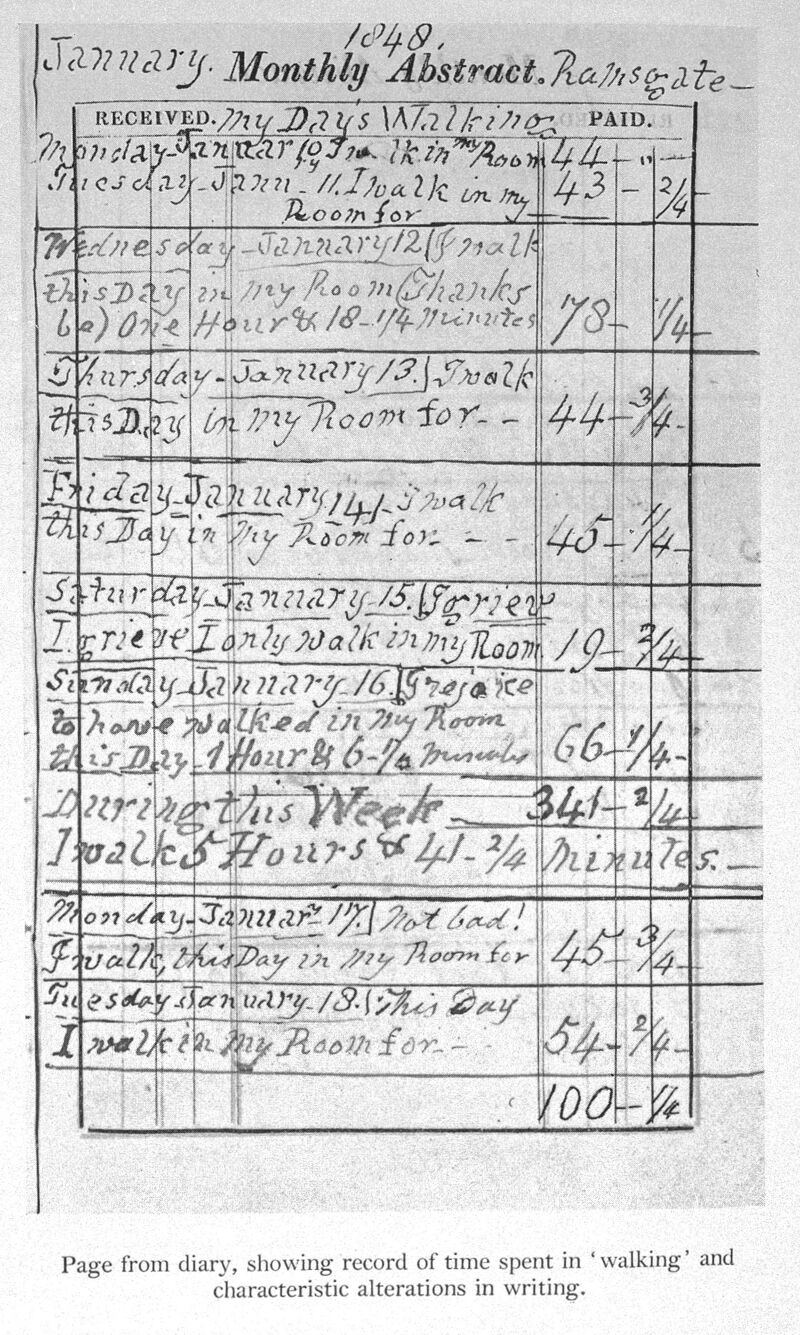 1848.
January. Monthly Abstract. Ramsgate—
RECEIVED. My Day's Walking PAID.
Monday-January 10 I walk in my Room 44 - " -
Tuesday-Janu - 11. I walk in my 43 - 2/4
Room for
Wednesday - January 12 | I walk
this Day in my Room (Thanks
be) One Hour & 18 - 1/4 Minutes 78 - 1/4
Thursday - January 13. | I walk
this Day in my Room for - - 44 - 3/4 -
Friday - January 14 | - I walk
this Day in my Room for - - - 45 - 1/4 -
Saturday - January - 15. | I griev
I grieve I only walk in my Room 19 - 2/4 -
Sunday - January - 16. | I rejoice
to have walked in my Room
this Day - 1 Hour & 6 - 1/4 Minutes 66 - 1/4 -
During this Week - 341 - 2/4 -
I walk 5 Hours & 41 - 2/4 Minutes. -
Monday - January - 17. | Not bad!
I walk, this Day in my Room for 45 - 3/4 -
Tuesday January - 18. | This Day
I walk in my Room for - - 54 - 2/4 -
100 - 1/4
Page from diary, showing record of time spent in 'walking' and
characteristic alterations in writing.